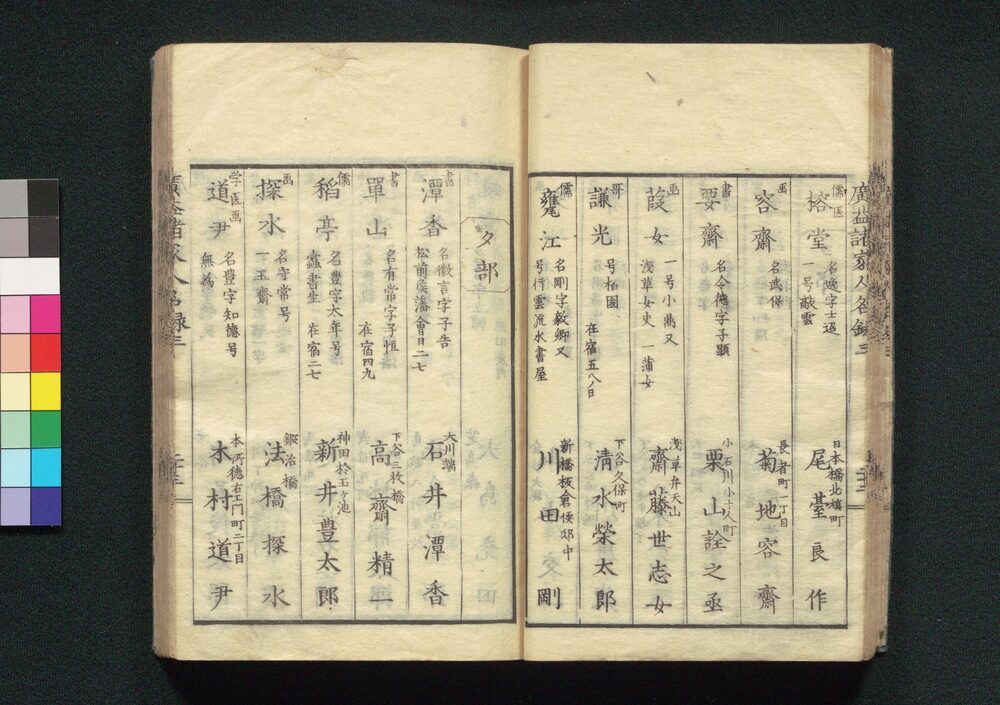 廣益諸家人名録 三
儒医
榕堂 名逸字士超
一号敲雲
日本橋北鞘町
尾臺良作
画
容齋 名武保
長者町一丁目
菊地容齋
書
要齋 名令德字子顯
小石川小十人町
栗山詮之丞
画
葭女 一号小鷹又
浅草女史 一蒲女
浅草弁天山
齋藤世志女
哥
謙光 号柏園
在宿五八ノ日
下谷久保町
清水榮太郎
儒
甕江 名剛字毅卿又
号行雲流水書屋
新橋板倉侯邸中
川田剛
タ部
書
潭香 名徽言字子告
松前侯藩會日二七
大川端
石井潭香
書
單山 名有常字子恒
在宿四九
下谷三枚橋
高齋精一
儒
稻亭 名豊字太年号
蠹書生 在宿二七
神田於玉ヶ池
新井豊太郎
画
探水 名守常号
一玉齋
鍛冶橋
法橋探水
学医画
道尹 名豊字知德号
無為
本所德右エ門町二丁目
木村道尹
二十三